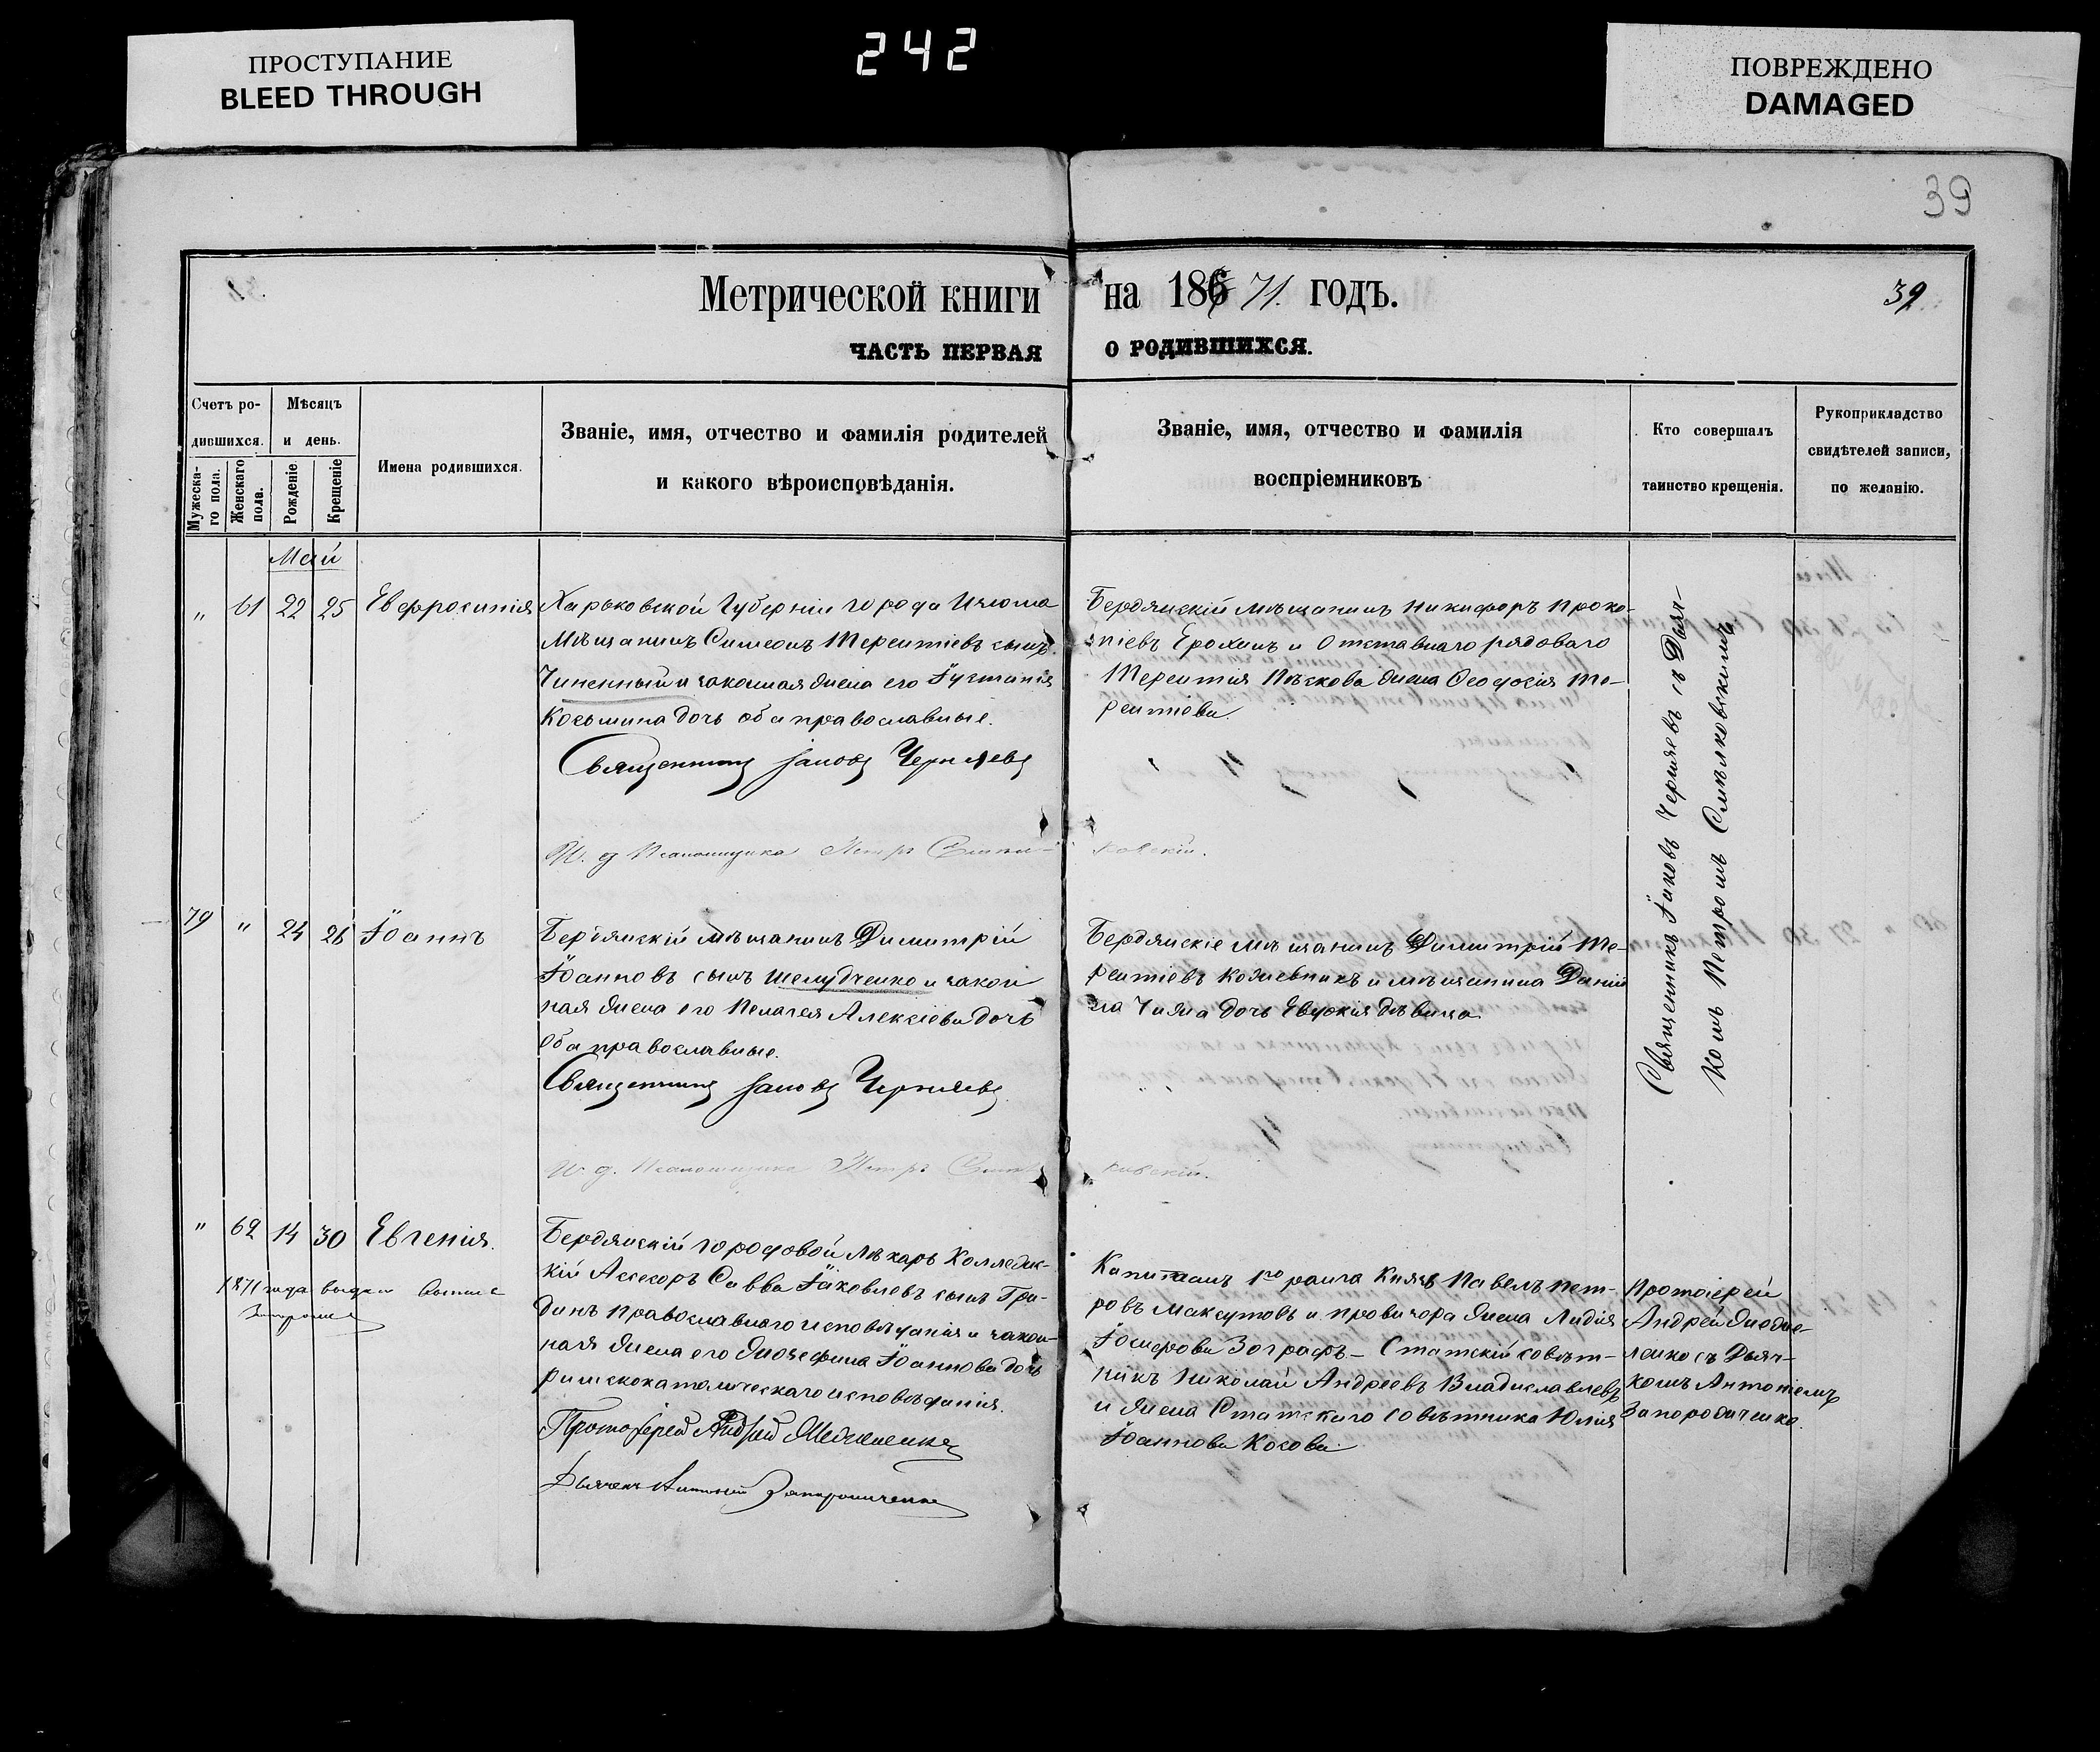 ПРОСТУПАНИЕ
BLEED THROUGH
242
ПОВРЕЖДЕНО
DAMAGED
39
Метрической книги на 186 71. годъ.
39
ЧАСТЬ ПЕРВАЯ О РОДИВШИХСЯ.
Счетъ ро-
дившихся.
Мужеска-
го пола.
Женскаго
пола.
Мѣсяцъ
и день.
Рожденіе
Крещеніе
Имена родившихся.
Званіе, имя, отчество и фамилія родителей
и какого вѣроисповѣданія.
Званіе, имя, отчество и фамилія
воспріемниковъ
Кто совершалъ
таинство крещенія.
Рукоприкладство
свидѣтелей записи,
по желанію.
Май
" 61 22 25 Евфросинія
Харьковской Губерніи города Изюма
Мѣщанинъ Симеонъ Терентіевъ сынъ
Чиненный и законная жена его Іустинія
Косьмина дочь оба православные.
Священникъ Іаковъ Черняевъ
И. д Псаломщика Петръ
Бердянскій мѣщанинъ Никифоръ Проко-
піевъ Ерохинъ и Отставнаго рядоваго
Терентія Пѣскова жена Ѳеодосія Те-
рентіева.
Священникъ Іаковъ Черняевъ съ Дьяч-
комъ Петромъ Смѣлковскимъ
79 " 24 26 Іоаннъ
Бердянскій мѣщанинъ Димитрій
Іоанновъ сынъ Шелудченко и закон
ная жена его Пелагея Алексіева дочь
оба православные.
Священникъ Іаковъ Черняевъ
И. д. Псаломщика Петръ
Бердянскіе мѣщанинъ Димитрій Те-
рентіевъ Кожевникъ и мѣщанина Даніи
ла Чижа дочь Евдокія дѣвица
" 62 14 30 Евгенія.
1871 года выдан
Бердянскій городовой лѣкарь Коллежс-
кій Ассесоръ Савва Іаковлевъ сынъ Гри-
динъ православнаго исповѣданія и закон-
ная жена его Жозефина Іоаннова дочь
римскокатолическаго исповѣданія.
Протоіерей Андрей
Дьячекъ Антоній Запорожченко
Капитанъ 1го ранга Князь Павелъ Пет-
ровъ Максутовъ и провизора жена Лидія
Іосифова Зографъ – Статскій совѣт-
никъ Николай Андреевъ Владиславлевъ
и жена Статскаго совѣтника Юлія
Іоаннова Косова.
Протоіерей
Андрей
ленко съ Дьяч-
комъ Антоніемъ
Запорожченко.